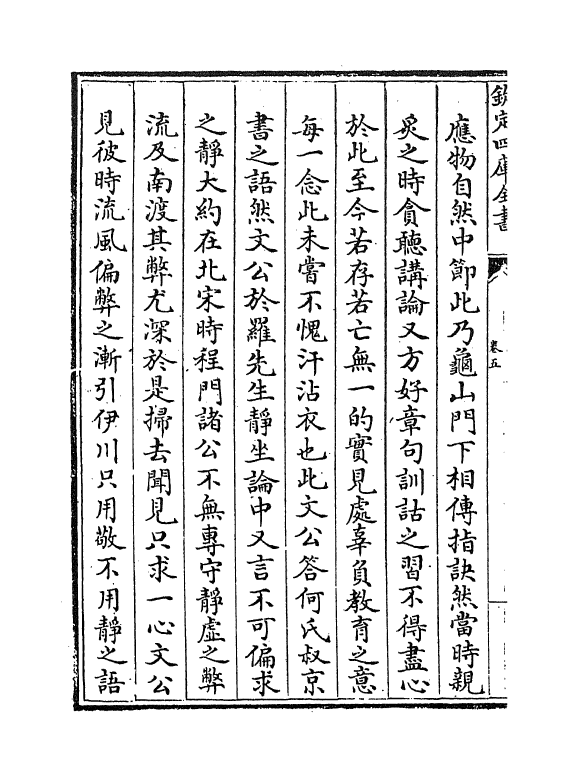 欽定四庫全書
卷五
應物自然中節此乃龜山門下相傳指訣然當時親
炙之時貪聽講論又方好章句訓詁之習不得盡心
於此至今若存若亡無一的實見處辜負教育之意
每一念此未嘗不愧汗沾衣也此文公答何氏叔京
書之語然文公於羅先生靜坐論中又言不可偏求
之靜大約在北宋時程門諸公不無專守靜虛之弊
流及南渡其弊尤深於是掃去聞見只求一心文公
見彼時流風偏弊之漸引伊川只用敬不用靜之語